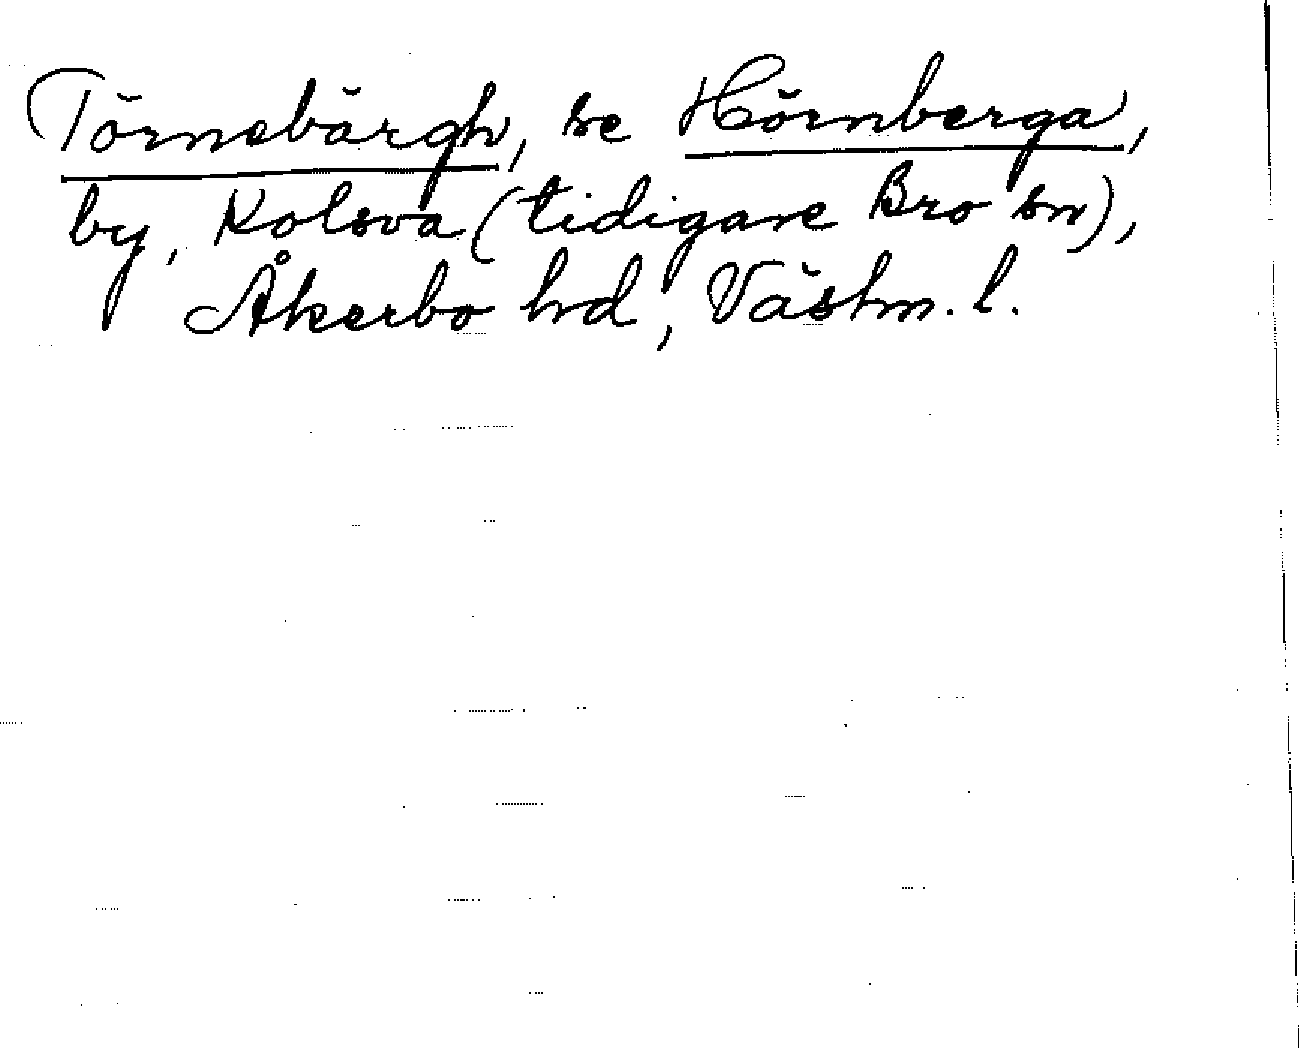 Törnebärgh, se Hörnberga,
by, Kolsva (tidigare Bro sn),
Åkerbo hd, Västm. l.